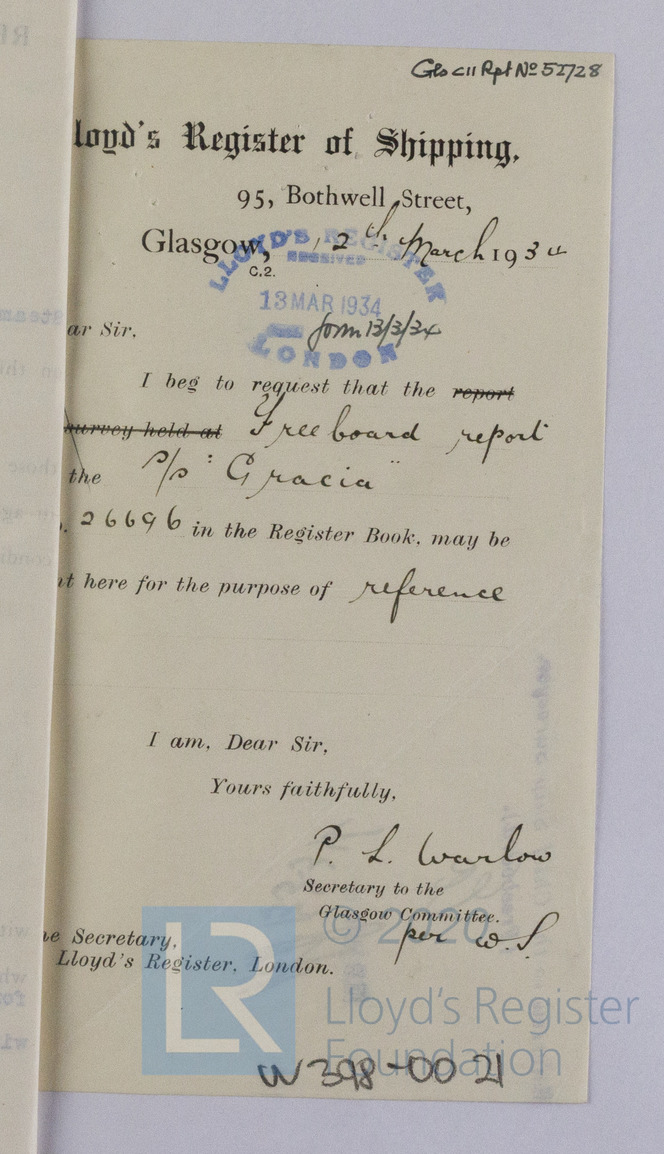 Gls C11 Rpt No 51728
loyd's Register of Shipping,
95, Bothwell Street,
Glasgow, 12th March 1934
C.2.
LLOYD'S REGISTER
RECEIVED
13 MAR 1934
LONDON
ar Sir,
13/3/34
I beg to request that the report
survey held at Freeboard report
the s/s "Gracia"
. 26696 in the Register Book, may be
nt here for the purpose of reference
I am, Dear Sir,
Yours faithfully,
P. L. Warlow
Secretary to the
Glasgow Committee.
per W.S.
he Secretary,
Lloyd's Register, London.
© 2020
LR
Lloyd's Register
Foundation
W398-0021